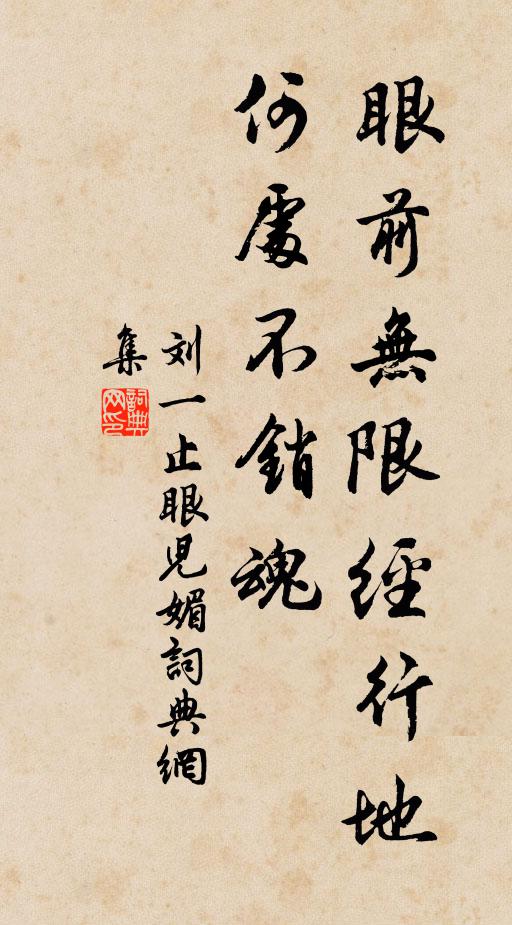 眼前無限經行地
何處不銷魂
刘一止眼児媚詞典網
集
詞典
网印